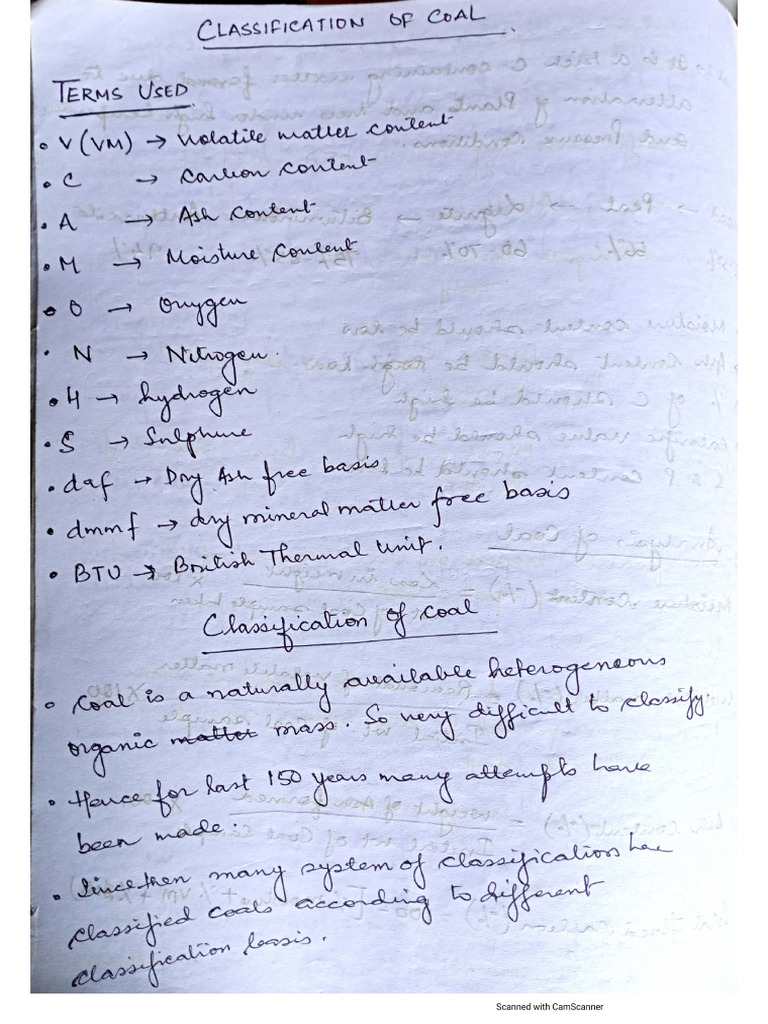 CLASSIFICATION OF COAL
TERMS USED
• V(VM) → Volatile matter content
• C → Carbon content
• A → Ash content
• M → Moisture content
• O → Oxygen
• N → Nitrogen.
• H → hydrogen
• S → Sulphure
• daf → Dry Ash free basis
• dmmf → dry mineral matter free basis
• BTU → British Thermal Unit.
Classification of coal
• Coal is a naturally available heterogeneous
organic matter mass. So very difficult to classify.
• Hence for last 150 years many attempts have
been made.
• Since then many system of classifications have
classified coals according to different
classification basis.
Scanned with CamScanner